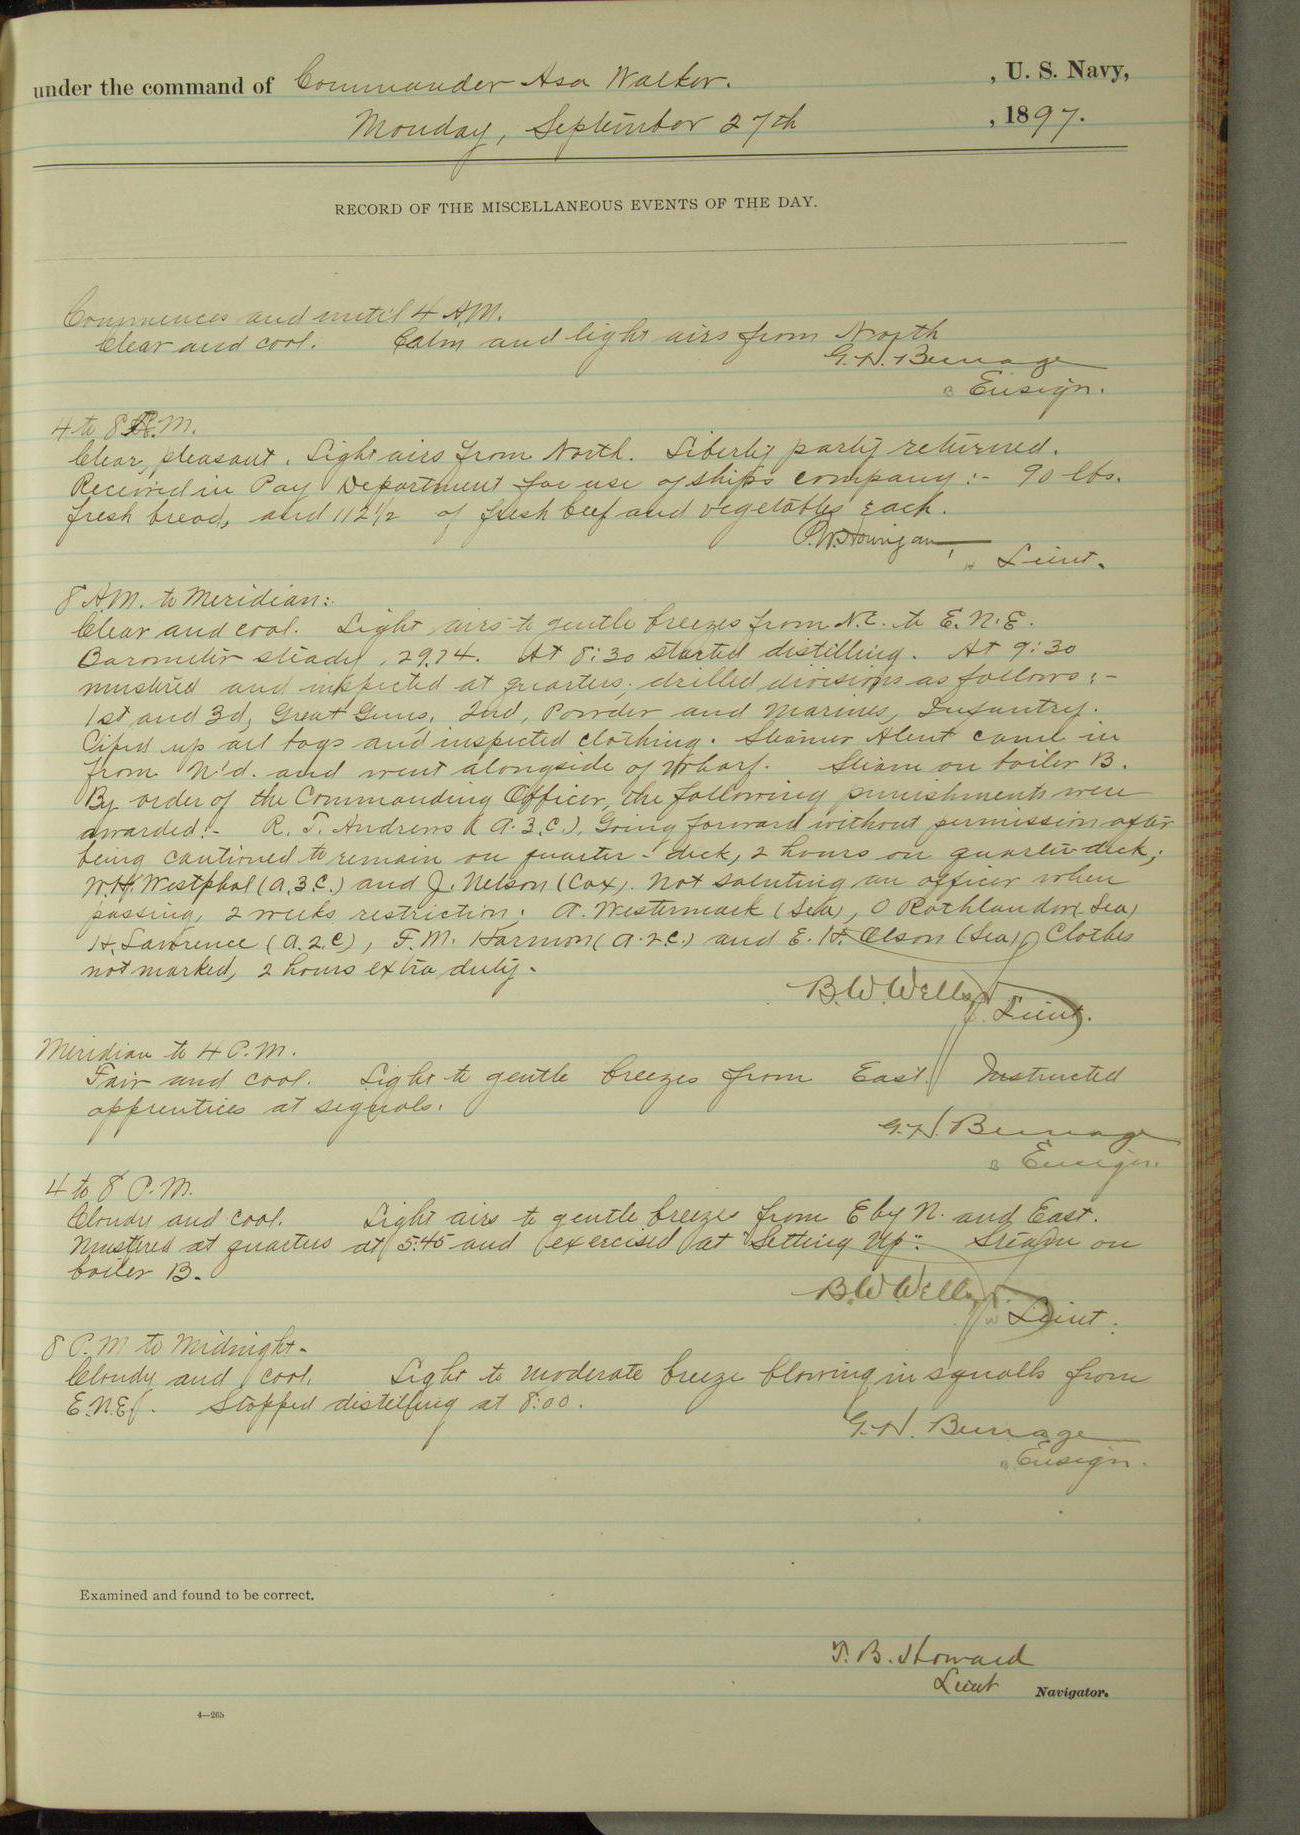 under the command of Commander Asa Walker. , U. S. Navy,
Monday, September 27th , 1897.
RECORD OF THE MISCELLANEOUS EVENTS OF THE DAY.
Commences and until 4 A.M.
Clear and cool. Calm and light airs from North
G. N. Burrage
Ensign.
4 to 8 A.M.
Clear, pleasant. Light airs from North. Liberty party returned.
Received in Pay Department for use of ship's company:- 90 lbs.
fresh bread, and 112 1/2 of fresh beef and vegetables each.
P. W. Hourigan,
Lieut.
8 A.M. to Meridian:
Clear and cool. Light airs to gentle breezes from N.E. to E.N.E.
Barometer steady, 29.74. At 8:30 started distilling. At 9:30
mustered and inspected at quarters; drilled divisions as follows:-
1st and 3d, Great Guns, 2nd, Powder and Marines, Infantry.
Piped up all bags and inspected clothing. Steamer Alert came in
from N'd. and went alongside of Wharf. Steam on boiler B.
By order of the Commanding Officer, the following punishments were
awarded:- R. T. Andrews (A.3.C.), Going forward without permission after
being cautioned to remain on quarter-deck, 2 hours on quarter-deck;
W.H. Westphal (A.3.C.) and J. Nelson (Cox). Not saluting an officer when
passing, 2 weeks restriction; A. Westermack (Sea), O Rothlander (Sea)
H. Lawrence (A.2.C), F. M. Harmon (A.2.C.) and E. H. Olson (Sea), Clothes
not marked, 2 hours extra duty.
B. W. Wells Jr.
Lieut.
Meridian to 4 P.M.
Fair and cool. Light to gentle breezes from East. Instructed
apprentices at signals.
G. N. Burrage
Ensign.
4 to 8 P.M.
Cloudy and cool. Light airs to gentle breezes from E by N. and East.
Mustered at quarters at 5:45 and exercised at "Setting Up". Steam on
boiler B.
B. W. Wells Jr.
Lieut.
8 P.M to Midnight.
Cloudy and cool. Light to moderate breeze blowing in squalls from
E.N.E. Stopped distilling at 8:00.
G. N. Burrage
Ensign.
Examined and found to be correct.
T. B. Howard
Lieut Navigator.
4—265